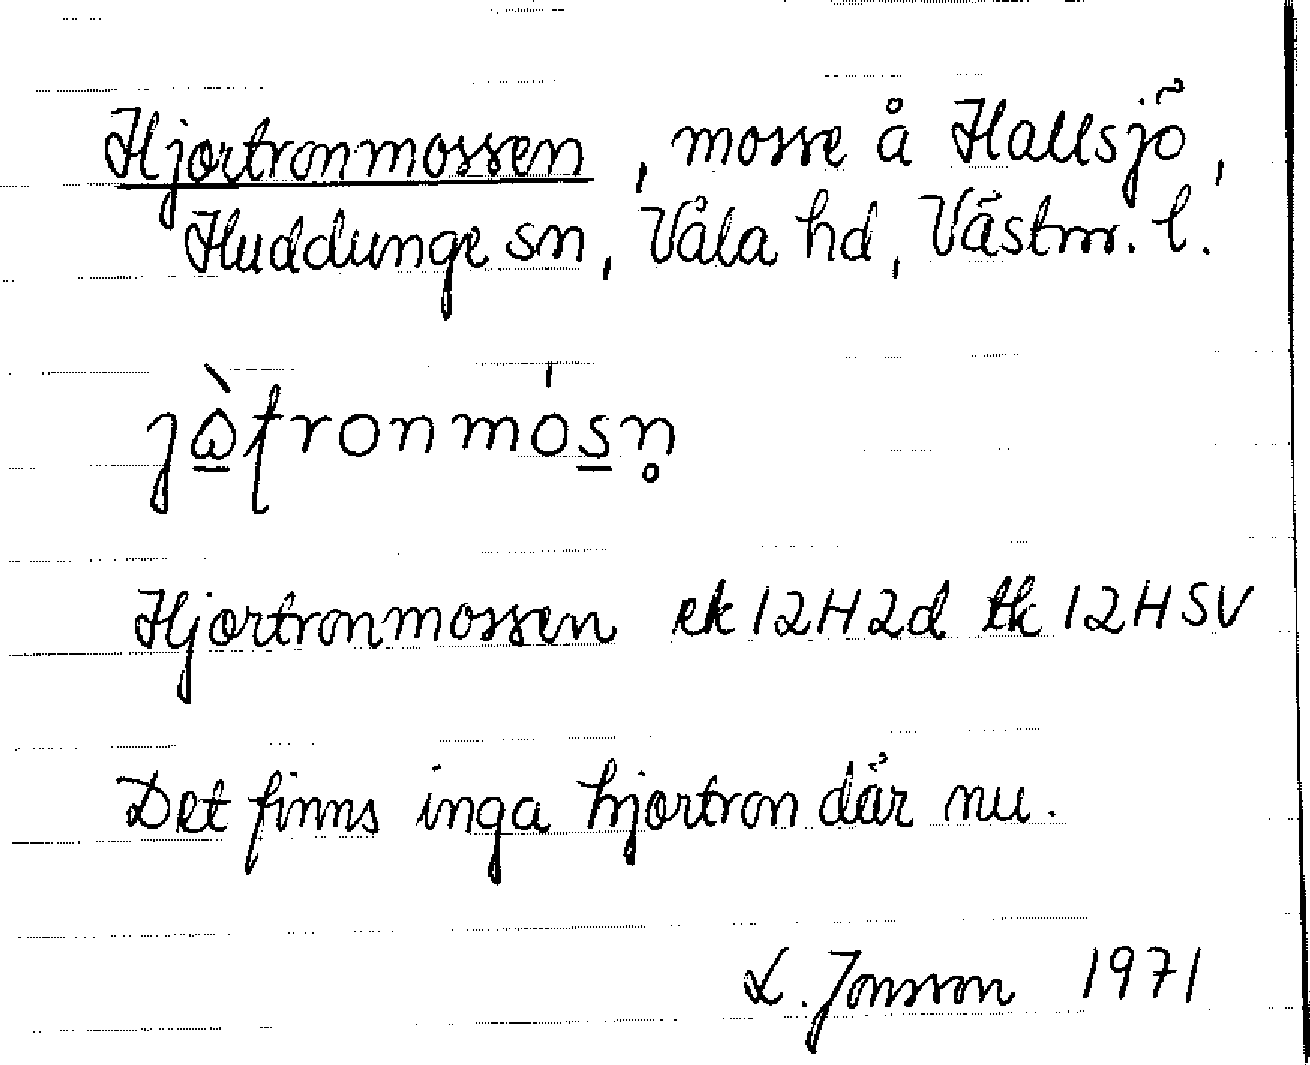 Hjortronmossen, mosse å Hallsjö,
Huddunge sn, Våla hd, Västm. l.
jὼtronmósn̥
Hjortronmossen ek 12H2d tk 12HSV
Det finns inga hjortron där nu.
L. Jonsson 1971